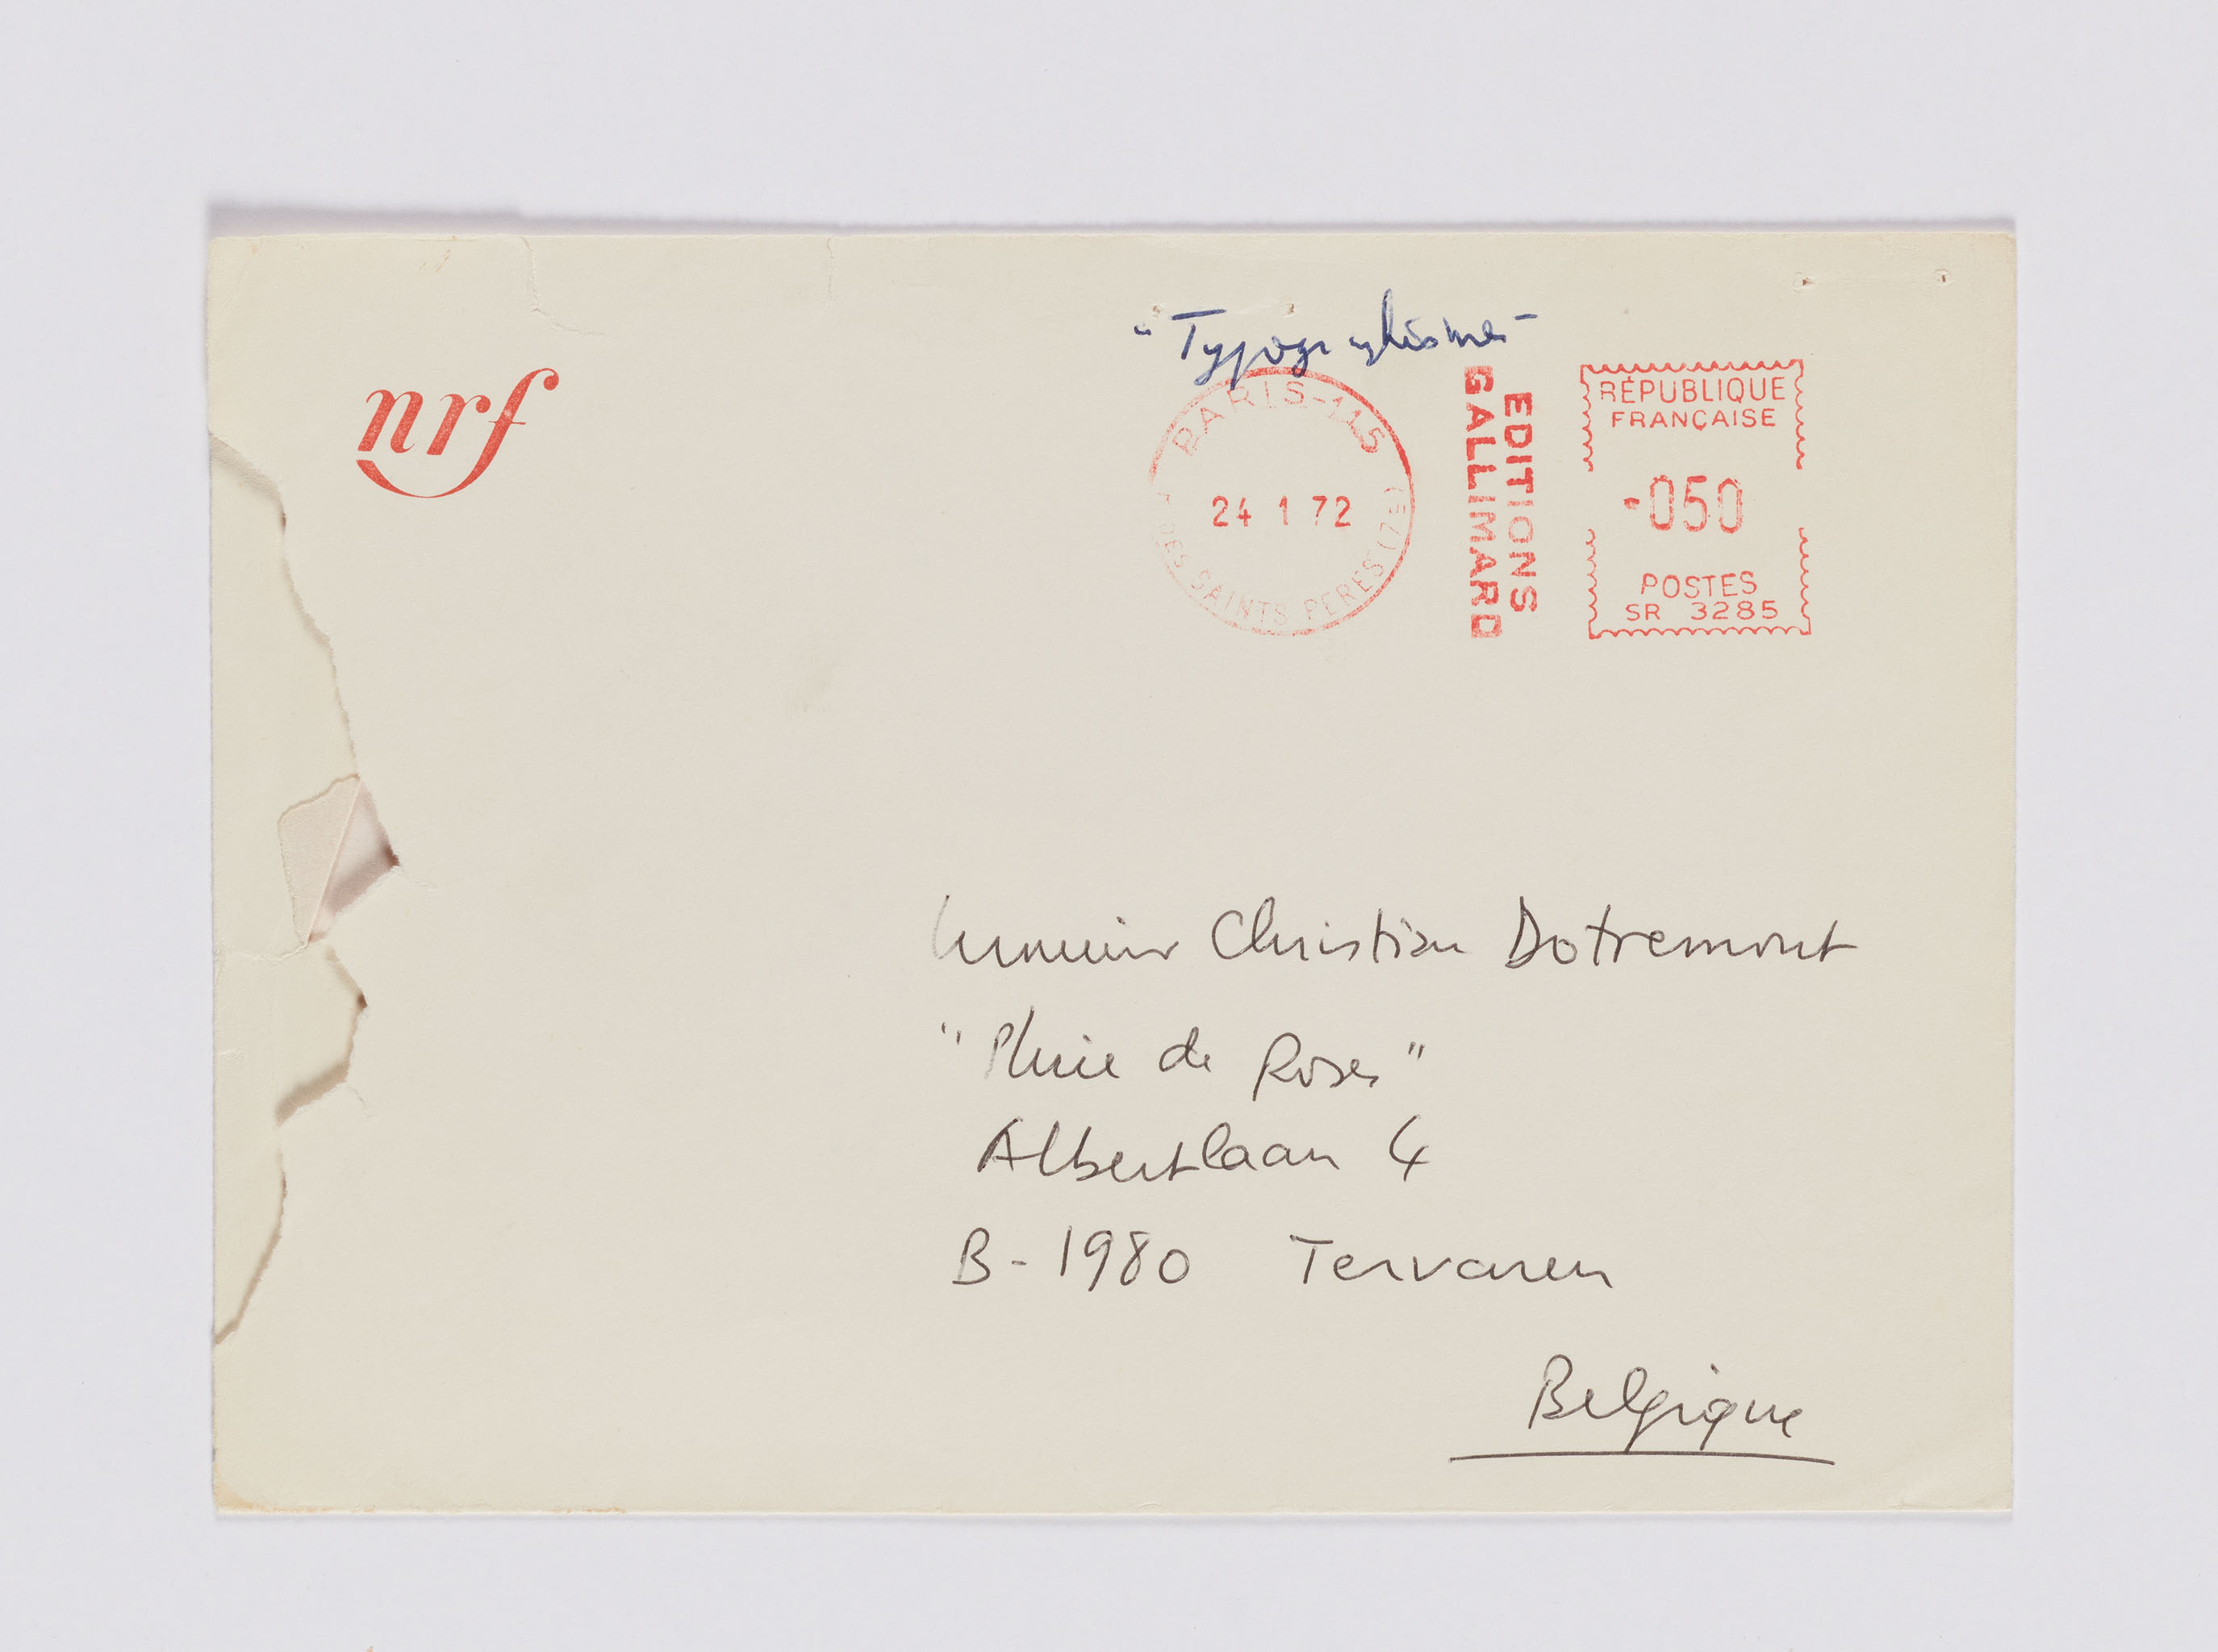 nrf
"Typographismes"
PARIS-115
24 1 72
DES SAINTS PERES (7E)
EDITIONS
GALLIMARD
RÉPUBLIQUE
FRANÇAISE
050
POSTES
SR 3285
Monsieur Christian Dotremont
"Pluie de Roses"
Albertlaan 4
B-1980 Tervuren
Belgique